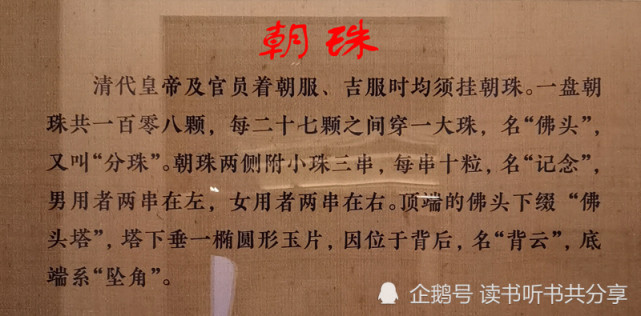 朝珠
清代皇帝及官员着朝服、吉服时均须挂朝珠。一盘朝
珠共一百零八颗，每二十七颗之间穿一大珠，名“佛头”，
又叫“分珠”。朝珠两侧附小珠三串，每串十粒，名“记念”，
男用者两串在左，女用者两串在右。顶端的佛头下缀“佛
头塔”，塔下垂一椭圆形玉片，因位于背后，名“背云”，底
端系“坠角”。
企鹅号 读书听书共分享